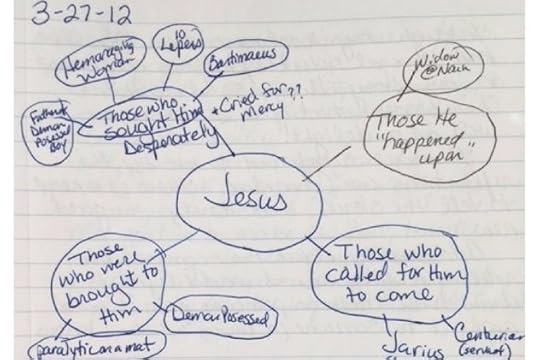 3-27-12
10
Lepers
Hemoraging
Woman
Bartimaeus
Widow
@Nain
Father of
Demon
Possessed
Boy
Those who
sought Him
Desperately
* Cried for ??
Mercy
Those He
"happened"
upon
Jesus
Those
who were
brought to
Him
Those who
called for Him
to come
Demon Posessed
paralytic on a mat
Jarius
Centurian
(servant)